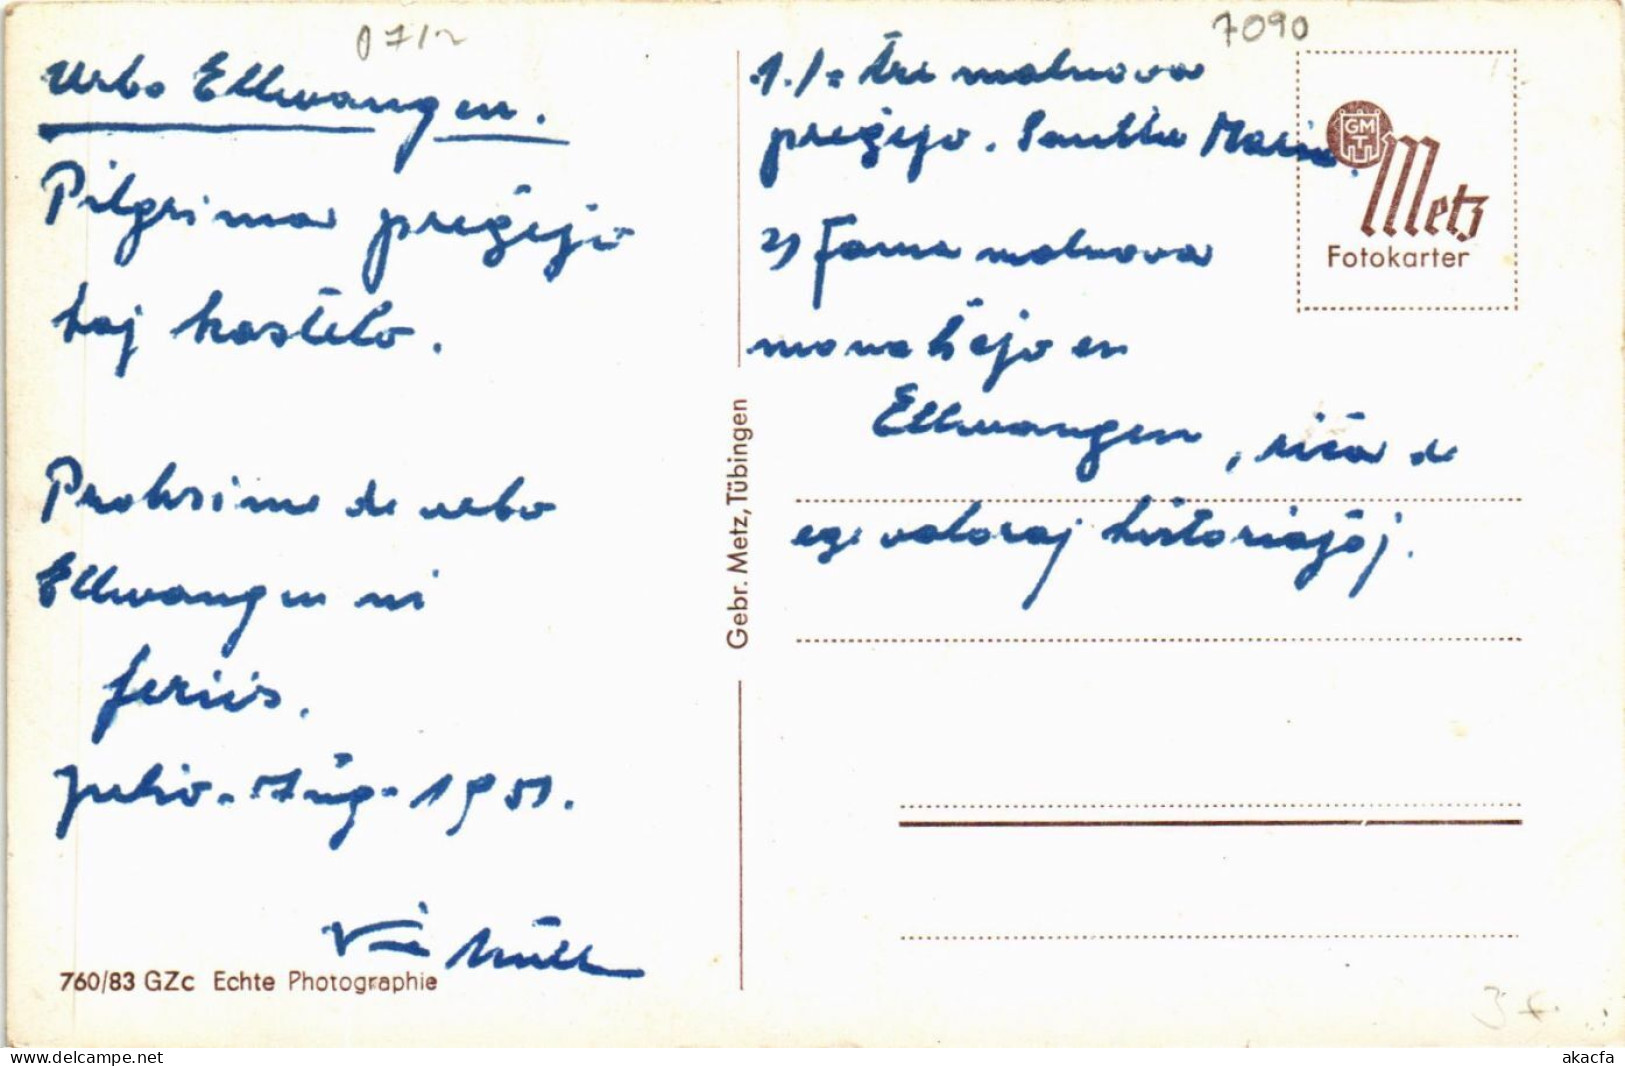 0712
Urbo Ellwangen.
Pilgrima preĝejo
kaj kastelo.
Proksime de urbo
Ellwangen ni
feriis.
Julio - Aŭg - 1951.
760/83 GZc Echte Photographie
Gebr. Metz, Tübingen
7090
1./= tre malnova
preĝejo. Sankta Maria.
2) Fama malnova
monaĥejo en
Ellwangen, riĉa de
ege valoraj historiaĵoj.
GMT
Metz
Fotokarter
akacfa